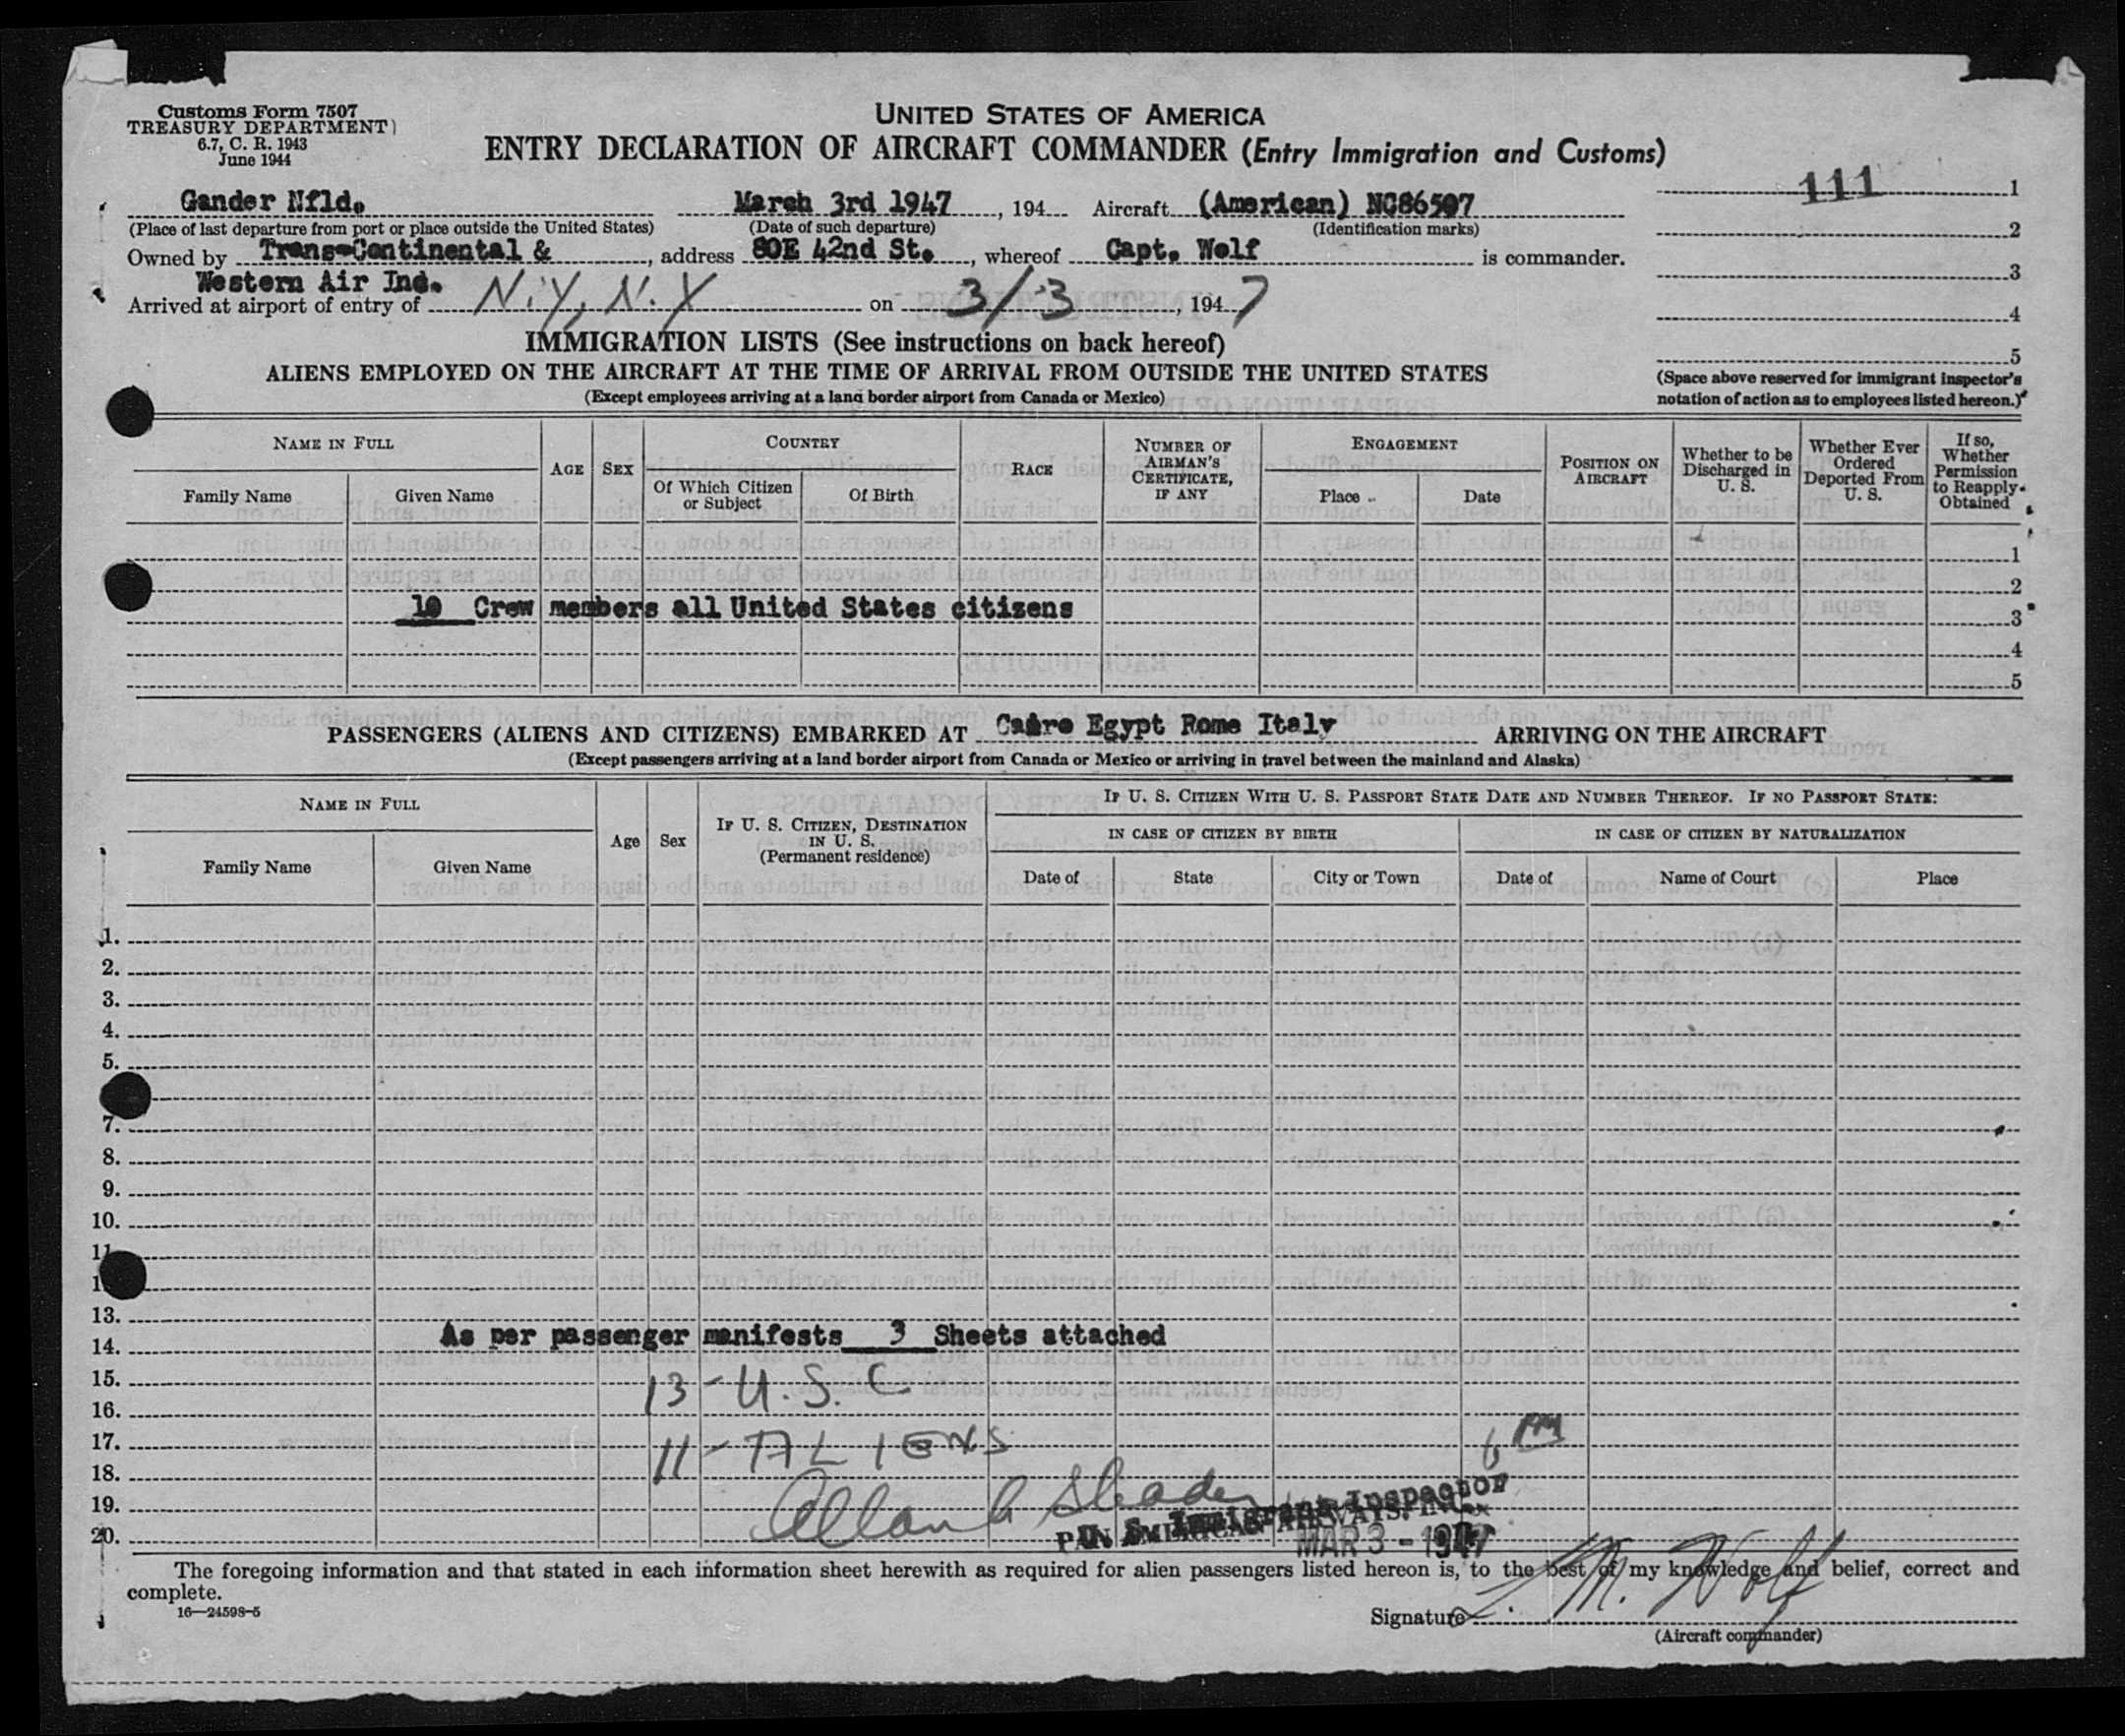 Customs Form 7507
TREASURY DEPARTMENT)
6.7, C. R. 1943
June 1944
UNITED STATES OF AMERICA
ENTRY DECLARATION OF AIRCRAFT COMMANDER (Entry Immigration and Customs)
111 1
2
3
4
5
(Space above reserved for immigrant inspector's notation of action as to employees listed hereon.)
Gander Nfld. March 3rd 1947, 194 Aircraft (American) NC86507
(Place of last departure from port or place outside the United States) (Date of such departure) (Identification marks)
Owned by Trans-Continental & , address 80E 42nd St. , whereof Capt. Wolf is commander.
Western Air Inc.
Arrived at airport of entry of N.Y, N.Y on 3/3, 1947
IMMIGRATION LISTS (See instructions on back hereof)
ALIENS EMPLOYED ON THE AIRCRAFT AT THE TIME OF ARRIVAL FROM OUTSIDE THE UNITED STATES
(Except employees arriving at a land border airport from Canada or Mexico)
NAME IN FULL
Family Name Given Name
AGE SEX
COUNTRY
Of Which Citizen or Subject
Of Birth
RACE
NUMBER OF AIRMAN'S CERTIFICATE, IF ANY
ENGAGEMENT
Place Date
POSITION ON AIRCRAFT
Whether to be Discharged in U. S.
Whether Ever Ordered Deported From U. S.
If so, Whether Permission to Reapply Obtained
1
2
10 Crew members all United States citizens 3
4
5
PASSENGERS (ALIENS AND CITIZENS) EMBARKED AT Cairo Egypt Rome Italy ARRIVING ON THE AIRCRAFT
(Except passengers arriving at a land border airport from Canada or Mexico or arriving in travel between the mainland and Alaska)
NAME IN FULL
Family Name Given Name
Age Sex
IF U. S. CITIZEN, DESTINATION IN U. S. (Permanent residence)
IF U. S. CITIZEN WITH U. S. PASSPORT STATE DATE AND NUMBER THEREOF. IF NO PASSPORT STATE:
IN CASE OF CITIZEN BY BIRTH
Date of State City or Town
IN CASE OF CITIZEN BY NATURALIZATION
Date of Name of Court Place
1.
2.
3.
4.
5.
7.
8.
9.
10.
11
1
13.
14. As per passenger manifests 3 Sheets attached
15. 13 - U. S. C
16.
17. 11 - ALIENS 6 PM
18.
19. Allan
U. S. Immigrant Inspector
20. PAN AMERICAN AIRWAYS, INC.
MAR 3 - 1947
The foregoing information and that stated in each information sheet herewith as required for alien passengers listed hereon is, to the best of my knowledge and belief, correct and
complete.
16—24598-5
Signature L. M. Wolf
(Aircraft commander)